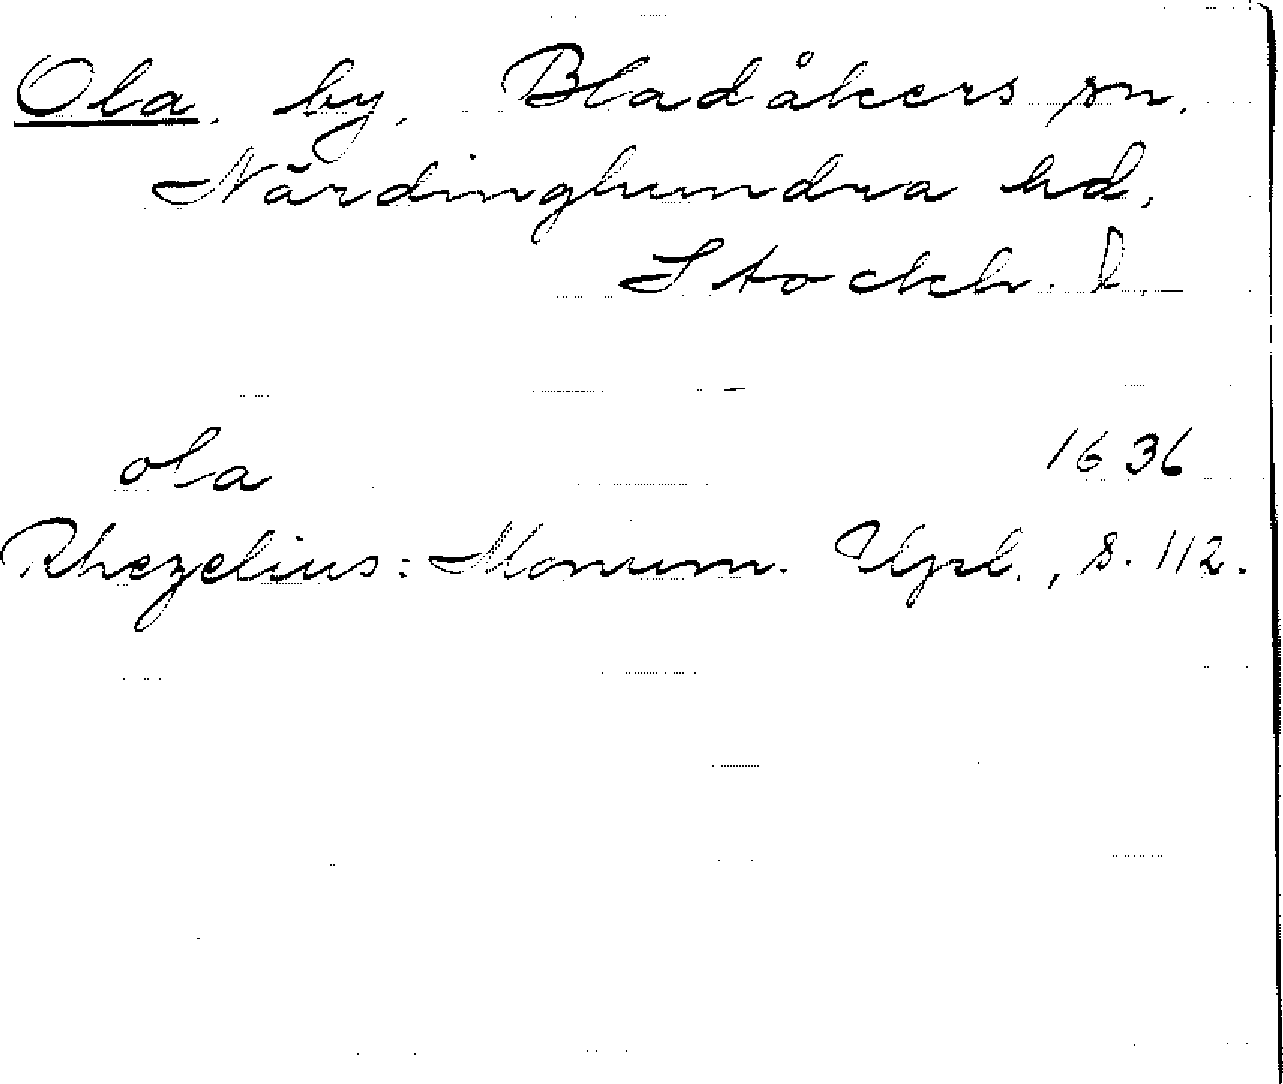 Ola, by, Bladåkers sn,
Närdinghundra hd,
Stockh. l.
ola 1636
Rhezelius: Monum. Upl., s. 112.